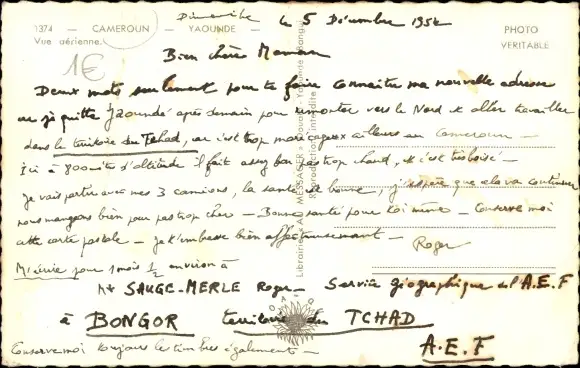 1374 – CAMEROUN – YAOUNDE –
Vue aérienne
PHOTO
VERITABLE
1€
Dimanche le 5 Décembre 1954
Bien chère Maman
Deux mots seulement pour te faire connaitre ma nouvelle adresse
car je quitte Yaoundé après demain pour remonter vers le Nord et aller travailler
dans le territoire du Tchad, car c'est trop marécageux ailleurs au Cameroun –
Ici à 800 mètres d'altitude il fait assez bon pas trop chaud, et c'est très boisé –
Je vais partir avec mes 3 camions, la santé est bonne, j'espère que cela va continuer
nous mangeons bien pour pas trop cher – Bonne santé pour toi même – Conserve moi
cette carte postale – je t'embrasse bien affectueusement –
Roger
M'écrire pour 1 mois ½ environ à
Mr SAUGE-MERLE Roger – Service géographique de l'A.E.F
à BONGOR territoire du TCHAD
A.E.F
Conserve moi toujours les timbres également –
Reproduction interdite